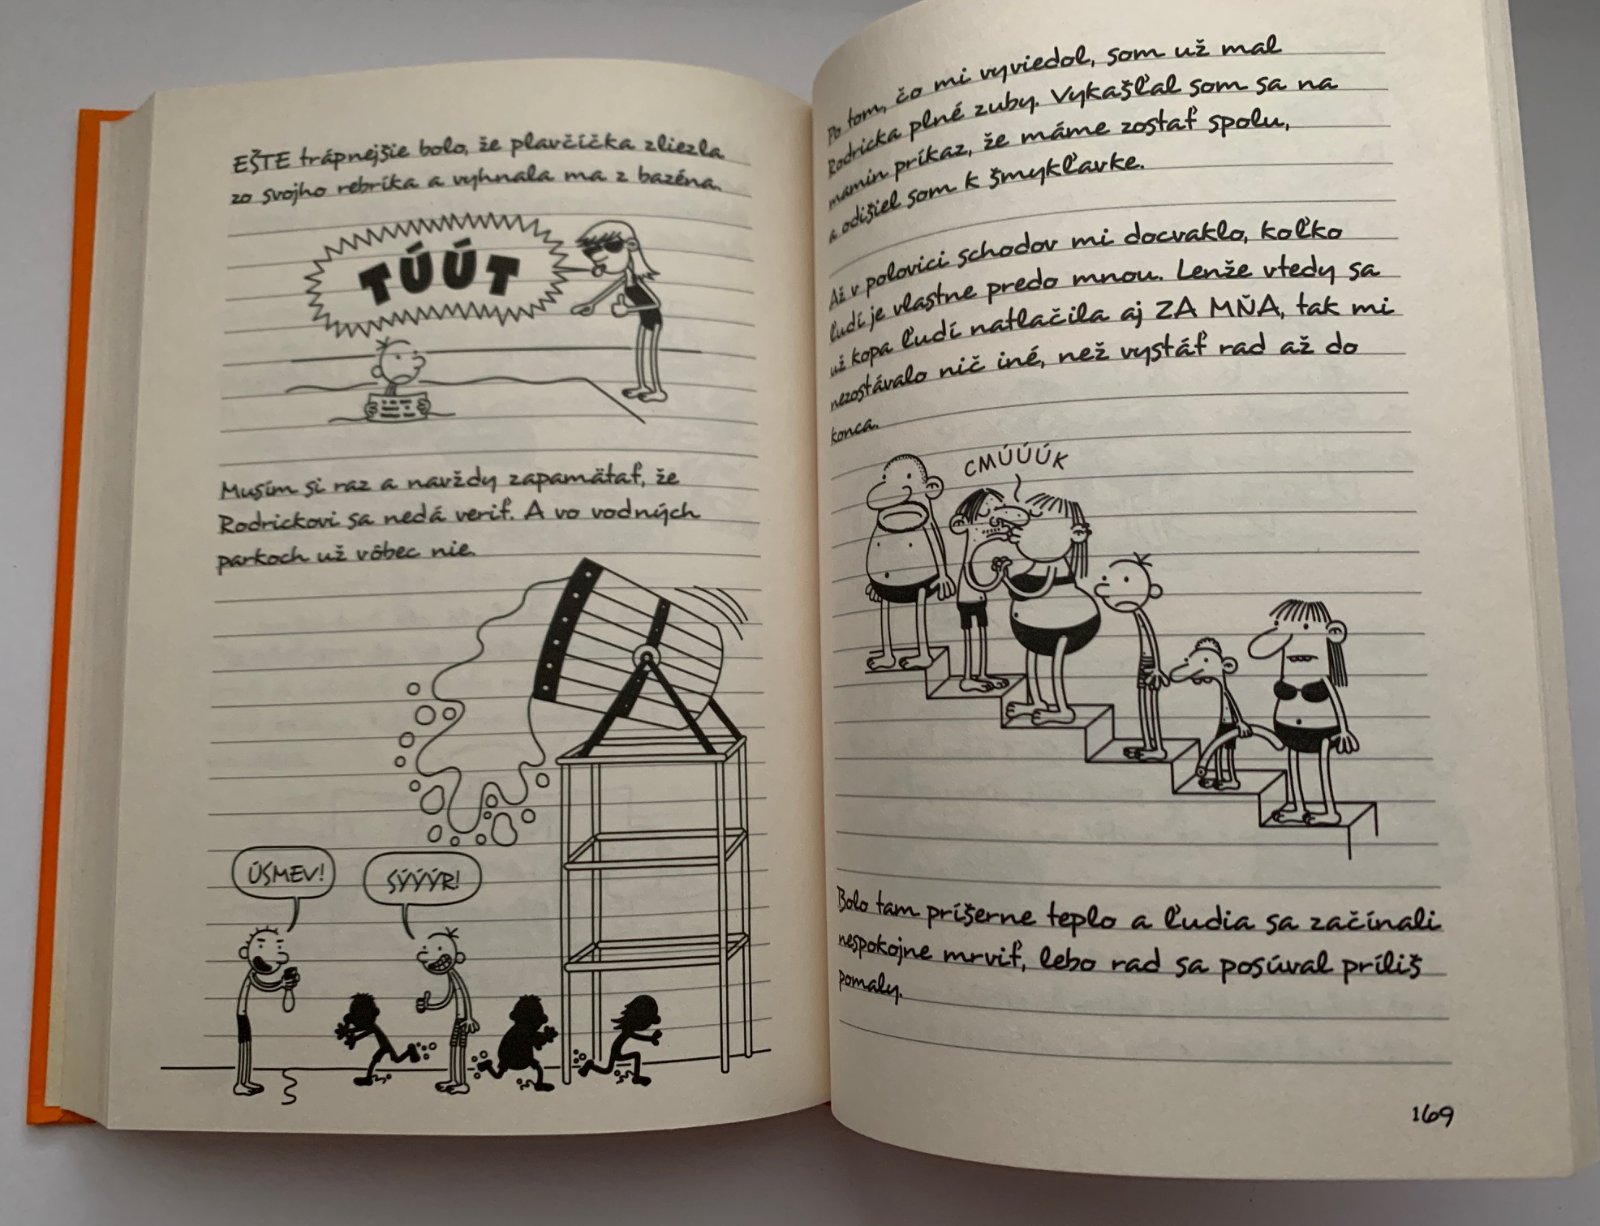 EŠTE trápnejšie bolo, že plavčíčka zliezla
zo svojho rebríka a vyhnala ma z bazéna.
TÚÚT
Musím si raz a navždy zapamätať, že
Rodrickovi sa nedá veriť. A vo vodných
parkoch už vôbec nie.
ÚSMEV!
SÝÝÝR!
Po tom, čo mi vyviedol, som už mal
Rodricka plné zuby. Vykašľal som sa na
mamin príkaz, že máme zostať spolu,
a odišiel som k šmykľavke.
Až v polovici schodov mi docvaklo, koľko
ľudí je vlastne predo mnou. Lenže vtedy sa
už kopa ľudí natlačila aj ZA MŇA, tak mi
nezostávalo nič iné, než vystáť rad až do
konca.
CMÚÚÚK
Bolo tam príšerne teplo a ľudia sa začínali
nespokojne mrviť, lebo rad sa posúval príliš
pomaly.
169